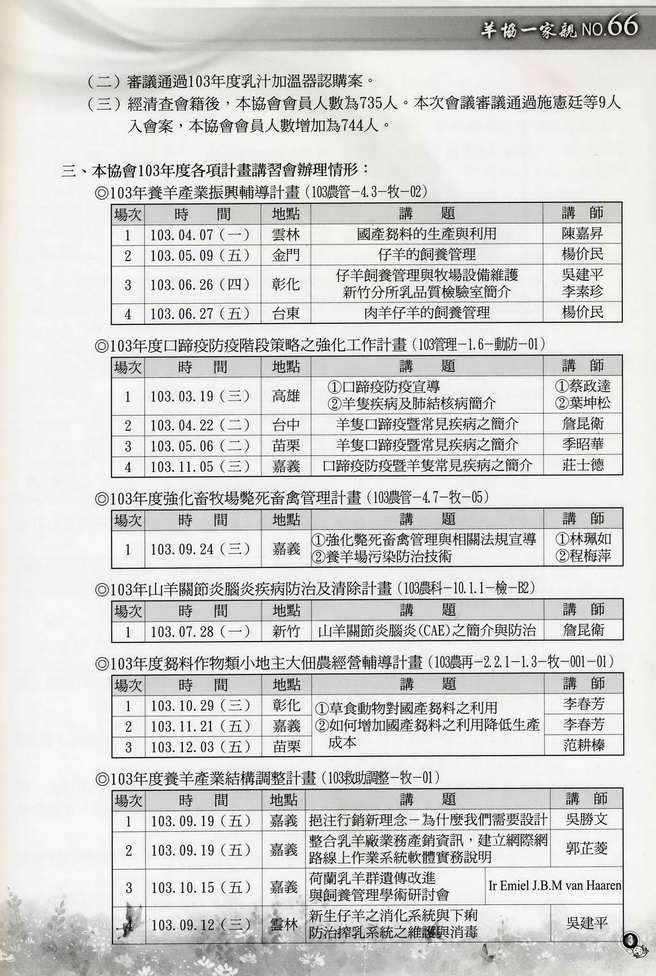 羊協一家親 NO.66
（二）審議通過103年度乳汁加溫器認購案。
（三）經清查會籍後，本協會會員人數為735人。本次會議審議通過施憲廷等9人
入會案，本協會會員人數增加為744人。
三、本協會103年度各項計畫講習會辦理情形：
◎103年養羊產業振興輔導計畫（103農管－4.3－牧－02）
場次 時 間 地點 講 題 講 師
1 103.04.07（一） 雲林 國產芻料的生產與利用 陳嘉昇
2 103.05.09（五） 金門 仔羊的飼養管理 楊价民
3 103.06.26（四） 彰化 仔羊飼養管理與牧場設備維護 吳建平
新竹分所乳品質檢驗室簡介 李素珍
4 103.06.27（五） 台東 肉羊仔羊的飼養管理 楊价民
◎103年度口蹄疫防疫階段策略之強化工作計畫（103管理－1.6－動防－01）
場次 時 間 地點 講 題 講 師
1 103.03.19（三） 高雄 ①口蹄疫防疫宣導 ①蔡政達
②羊隻疾病及肺結核病簡介 ②葉坤松
2 103.04.22（二） 台中 羊隻口蹄疫暨常見疾病之簡介 詹昆衛
3 103.05.06（二） 苗栗 羊隻口蹄疫暨常見疾病之簡介 季昭華
4 103.11.05（三） 嘉義 口蹄疫防疫暨羊隻常見疾病之簡介 莊士德
◎103年度強化畜牧場斃死畜禽管理計畫（103農管－4.7－牧－05）
場次 時 間 地點 講 題 講 師
1 103.09.24（三） 嘉義 ①強化斃死畜禽管理與相關法規宣導 ①林珮如
②養羊場污染防治技術 ②程梅萍
◎103年山羊關節炎腦炎疾病防治及清除計畫（103農科－10.1.1－檢－B2）
場次 時 間 地點 講 題 講 師
1 103.07.28（一） 新竹 山羊關節炎腦炎(CAE)之簡介與防治 詹昆衛
◎103年度芻料作物類小地主大佃農經營輔導計畫（103農再－2.2.1－1.3－牧－001－01）
場次 時 間 地點 講 題 講 師
1 103.10.29（三） 彰化 ①草食動物對國產芻料之利用 李春芳
2 103.11.21（五） 嘉義 ②如何增加國產芻料之利用降低生產 李春芳
3 103.12.03（五） 苗栗 成本 范耕榛
◎103年度養羊產業結構調整計畫（103救助調整－牧－01）
場次 時 間 地點 講 題 講 師
1 103.09.19（五） 嘉義 挹注行銷新理念－為什麼我們需要設計 吳勝文
2 103.09.19（五） 嘉義 整合乳羊廠業務產銷資訊，建立網際網 郭芷菱
路線上作業系統軟體實務說明
3 103.10.15（五） 嘉義 荷蘭乳羊群遺傳改進 Ir Emiel J.B.M van Haaren
與飼養管理學術研討會
4 103.09.12（三） 雲林 新生仔羊之消化系統與下痢 吳建平
防治搾乳系統之維護與消毒